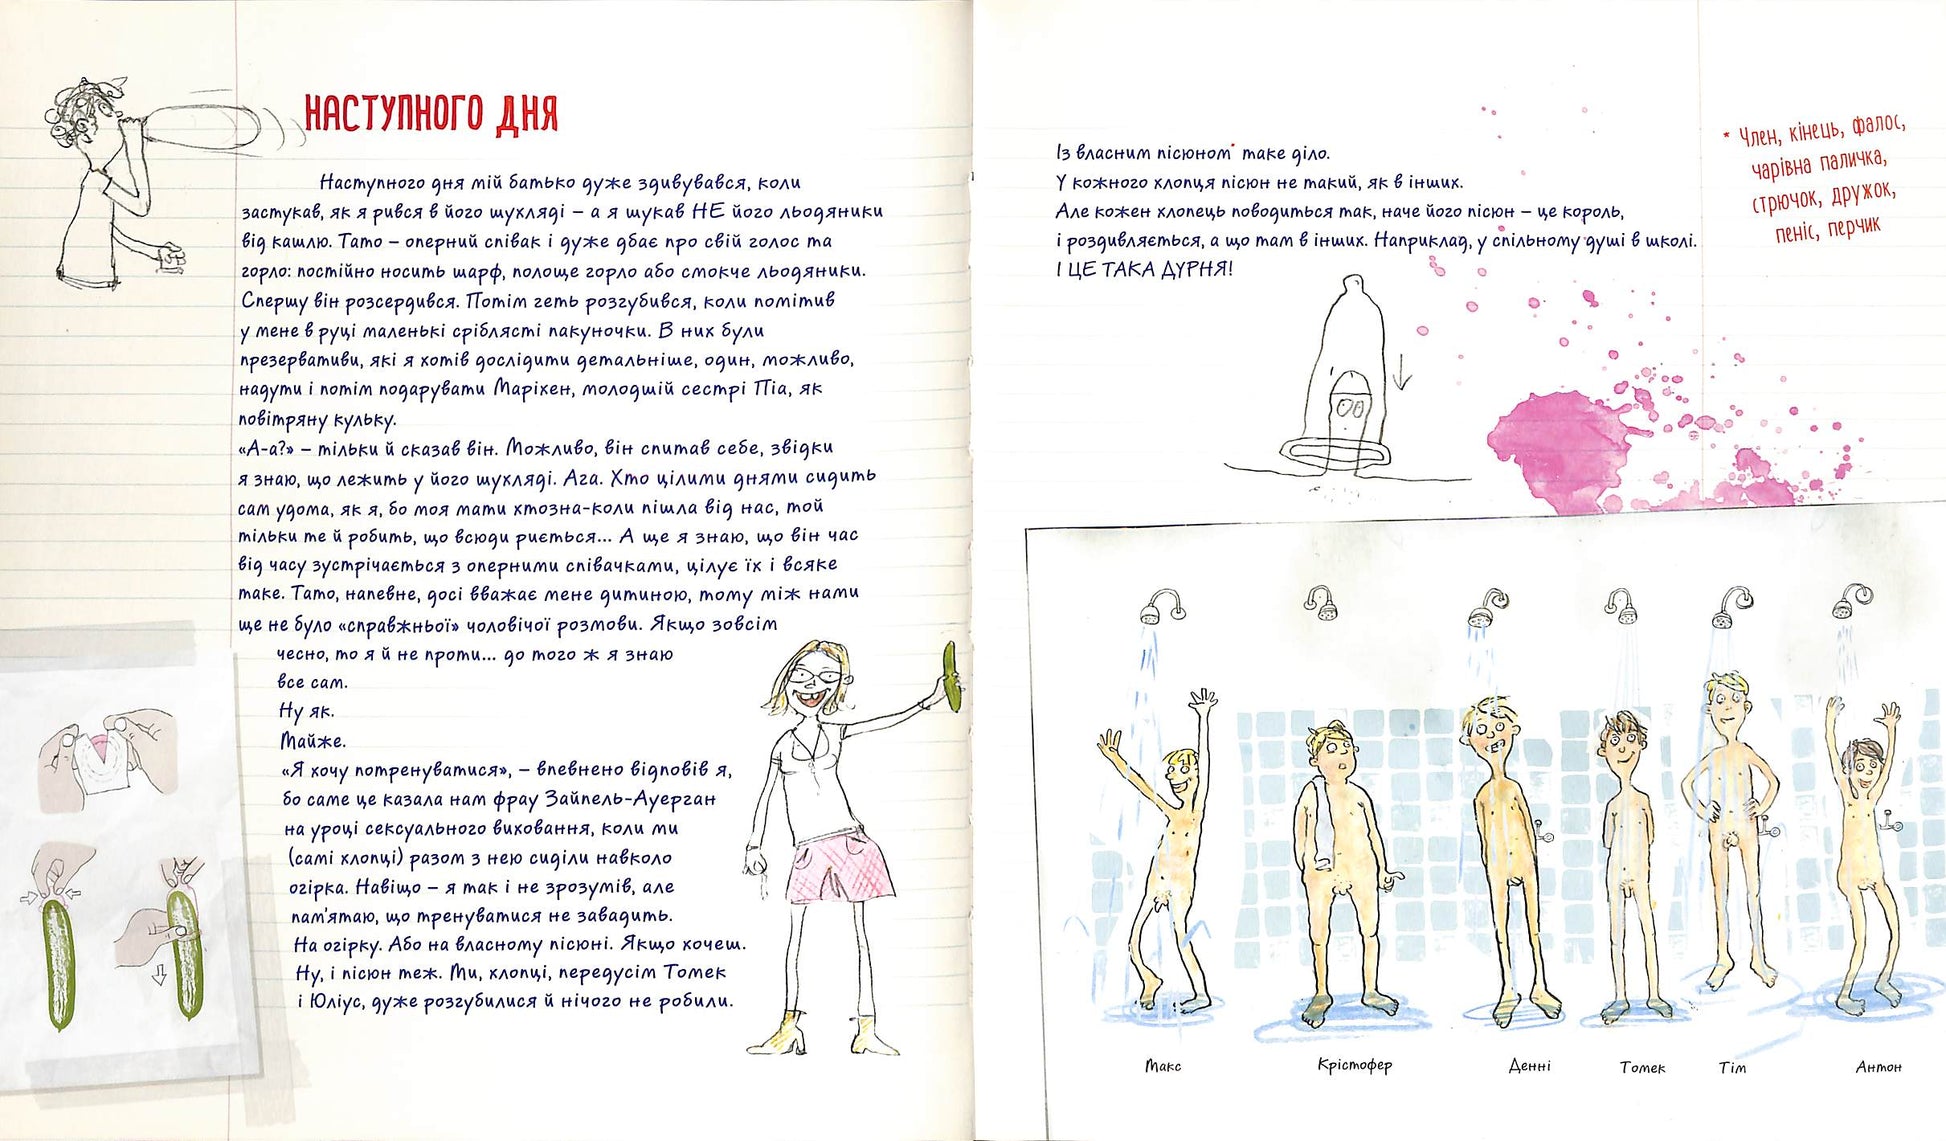 НАСТУПНОГО ДНЯ
Наступного дня мій батько дуже здивувався, коли
застукав, як я рився в його шухляді – а я шукав НЕ його льодяники
від кашлю. Тато – оперний співак і дуже дбає про свій голос та
горло: постійно носить шарф, полоще горло або смокче льодяники.
Спершу він розсердився. Потім геть розгубився, коли помітив
у мене в руці маленькі сріблясті пакуночки. В них були
презервативи, які я хотів дослідити детальніше, один, можливо,
надути і потім подарувати Маріхен, молодшій сестрі Піа, як
повітряну кульку.
«А-а?» – тільки й сказав він. Можливо, він спитав себе, звідки
я знаю, що лежить у його шухляді. Ага. Хто цілими днями сидить
сам удома, як я, бо моя мати хтозна-коли пішла від нас, той
тільки те й робить, що всюди риється... А ще я знаю, що він час
від часу зустрічається з оперними співачками, цілує їх і всяке
таке. Тато, напевне, досі вважає мене дитиною, тому між нами
ще не було «справжньої» чоловічої розмови. Якщо зовсім
чесно, то я й не проти... до того ж я знаю
все сам.
Ну як.
Майже.
«Я хочу потренуватися», – впевнено відповів я,
бо саме це казала нам фрау Зайпель-Ауерган
на уроці сексуального виховання, коли ми
(самі хлопці) разом з нею сиділи навколо
огірка. Навіщо – я так і не зрозумів, але
пам'ятаю, що тренуватися не завадить.
На огірку. Або на власному пісюні. Якщо хочеш.
Ну, і пісюн теж. Ми, хлопці, передусім Томек
і Юліус, дуже розгубилися й нічого не робили.
Із власним пісюном* таке діло.
У кожного хлопця пісюн не такий, як в інших.
Але кожен хлопець поводиться так, наче його пісюн – це король,
і роздивляється, а що там в інших. Наприклад, у спільному душі в школі.
І ЦЕ ТАКА ДУРНЯ!
* Член, кінець, фалос,
чарівна паличка,
стрючок, дружок,
пеніс, перчик
Макс
Крістофер
Денні
Томек
Тім
Антон